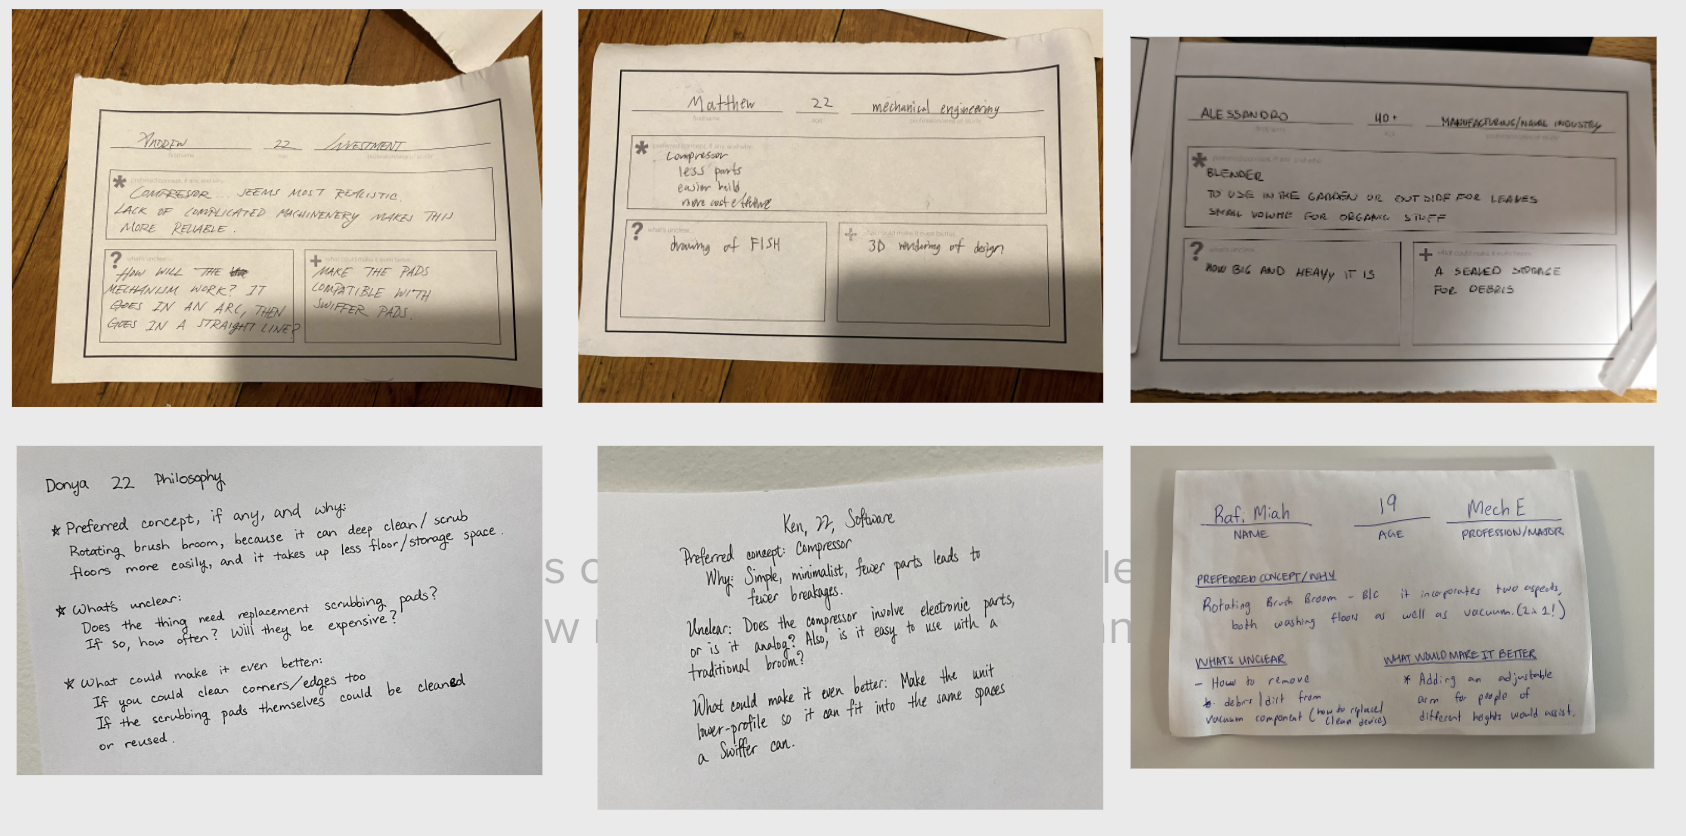 ANDREW 22 INVESTMENT
firstname
COMPRESOR ... SEEMS MOST REALISTIC.
LACK OF COMPLICATED MACHINENERY MAKES THIS
MORE RELIABLE.
? what's unclear
HOW WILL THE
MECHANISM WORK? IT
GOES IN AN ARC, THEN
GOES IN A STRAIGHT LINE?
+
MAKE THE PADS
COMPATIBLE WITH
SWIFFER PADS.
Matthew 22 mechanical engineering
firstname age
* preferred concept, if any, and why
compressor
less parts
easier build
more cost effective
? what's unclear
drawing of FISH
+ could make it even better
3D rendering of design
ALESSANDRO 40+ MANUFACTURING/NAVAL INDUSTRY
* preferred concept, if any, and why
BLENDER
TO USE IN THE GARDEN OR OUTSIDE FOR LEAVES
SMALL VOLUME FOR ORGANIC STUFF
? what's unclear
HOW BIG AND HEAVY IT IS
+ what could make it even better
A SEALED STORAGE
FOR DEBRIS
Donya 22 Philosophy
* Preferred concept, if any, and why:
Rotating brush broom, because it can deep clean/scrub
floors more easily, and it takes up less floor/storage space.
* What's unclear:
Does the thing need replacement scrubbing pads?
If so, how often? Will they be expensive?
* What could make it even better:
If you could clean corners/edges too
If the scrubbing pads themselves could be cleaned
or reused.
Ken, 22, Software
Preferred concept: Compressor
Why: Simple, minimalist, fewer parts leads to
fewer breakages.
Unclear: Does the compressor involve electronic parts,
or is it analog? Also, is it easy to use with a
traditional broom?
What could make it even better: Make the unit
lower-profile so it can fit into the same spaces
a Swiffer can.
Raf. Miah 19 Mech E
NAME AGE PROFESSION/MAJOR
PREFERRED CONCEPT/WHY
Rotating Brush Broom - B/c it incorporates two aspects,
both washing floors as well as vacuum. (2 in 1!)
WHAT'S UNCLEAR
- How to remove
debris/dirt from
vacuum component (how to replace/
clean device)
WHAT WOULD MAKE IT BETTER
* Adding an adjustable
arm for people of
different heights would assist.